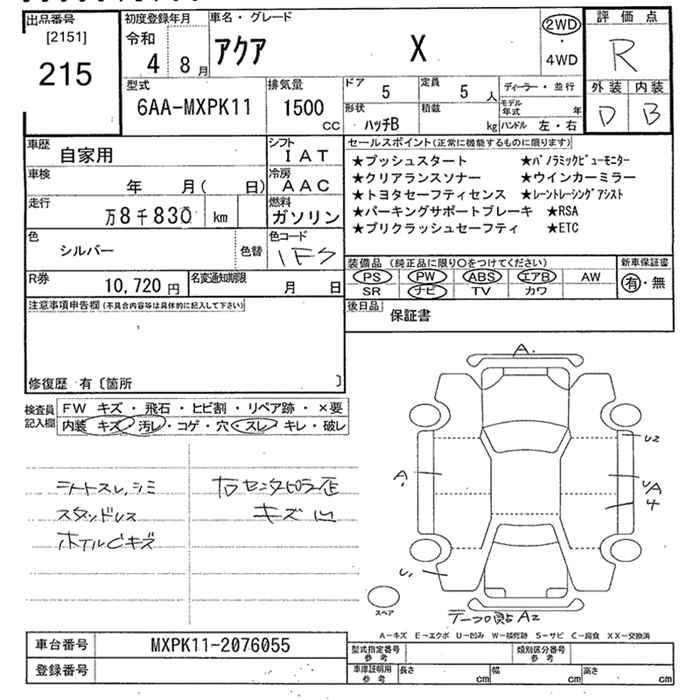 出品番号
[2151]
215
初度登録年月
令和
4 8月
車名・グレード
アクア X
2WD
・
4WD
評価点
R
外装 内装
D B
型式
6AA-MXPK11
排気量
1500
CC
ドア 5
定員 5 人
形状
ハッチB
積載
kg
ディーラー・並行
モデル年式 年
ハンドル 左・右
車歴
自家用
車検
年 月( 日)
走行
万8千830 km
色
シルバー
色替
シフト
IAT
冷房
AAC
燃料
ガソリン
色コード
1F7
R券
10,720円
名変通知期限
月 日
セールスポイント(正常に機能するものに限ります)
★プッシュスタート ★パノラミックビューモニター
★クリアランスソナー ★ウインカーミラー
★トヨタセーフティセンス ★レーントレーシングアシスト
★パーキングサポートブレーキ ★RSA
★プリクラッシュセーフティ ★ETC
装備品(純正品に限り○をつけてください)
PS PW ABS エアB AW
SR ナビ TV カワ
新車保証書
有・無
後日品
保証書
注意事項申告欄(不具合内容等は具体的に記入して下さい)
修復歴 有〔箇所 〕
検査員記入欄
FW キズ・飛石・ヒビ割・リペア跡・×要
内装 キズ・汚レ・コゲ・穴・スレ・キレ・破レ
シートスレ、シミ
ホイルCキズ
右センタピラー歪
キズ凹
A
A
U2
UA
4
U1
スペア
A2
A−キズ E−エクボ U−凹み W−補修跡 S−サビ C−腐食 XX−交換済
車台番号
MXPK11-2076055
登録番号
型式指定番号
参考
類別区分番号
参考
車庫証明用
参考
長さ cm 幅 cm 高さ cm